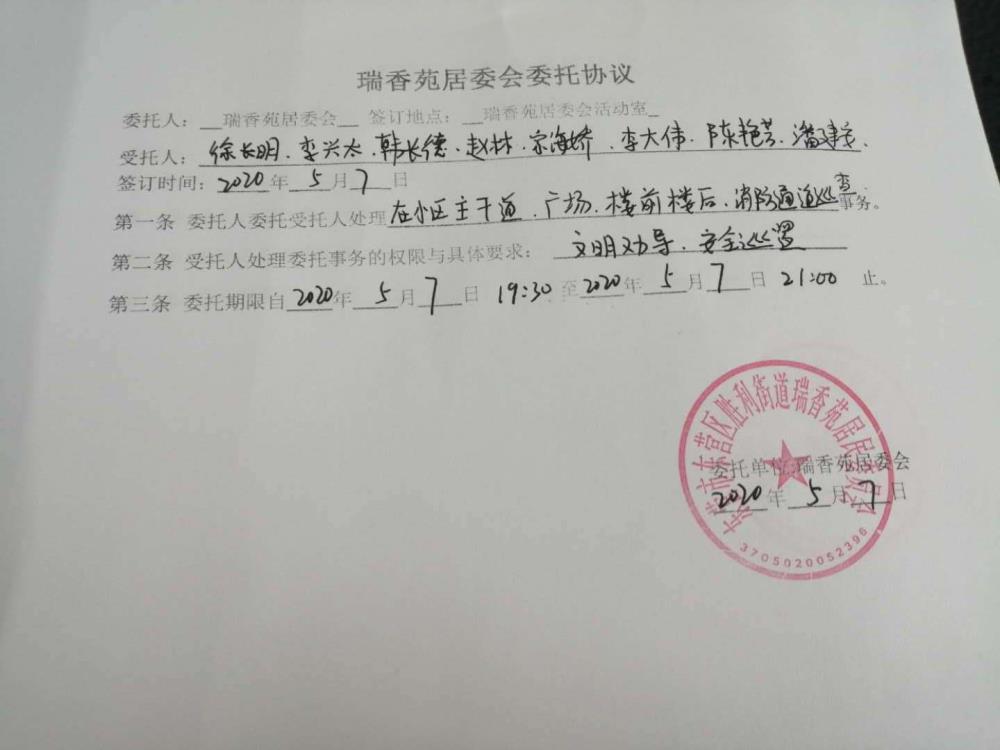 瑞香苑居委会委托协议
委托人：__瑞香苑居委会__ 签订地点：__瑞香苑居委会活动室_
受托人：徐长明、李兴太、韩长德、赵林、宗海娇、李大伟、陈艳芸、潘建
签订时间：2020年5月7日
第一条 委托人委托受托人处理在小区主干道、广场、楼前楼后、消防通道巡查事务。
第二条 受托人处理委托事务的权限与具体要求：文明劝导、安全巡置
第三条 委托期限自2020年5月7日 19:30至2020年5月7日 21:00 止。
东营市东营区胜利街道瑞香苑居民委员会
委托单位:瑞香苑居委会
2020年5月7日
3705020052396